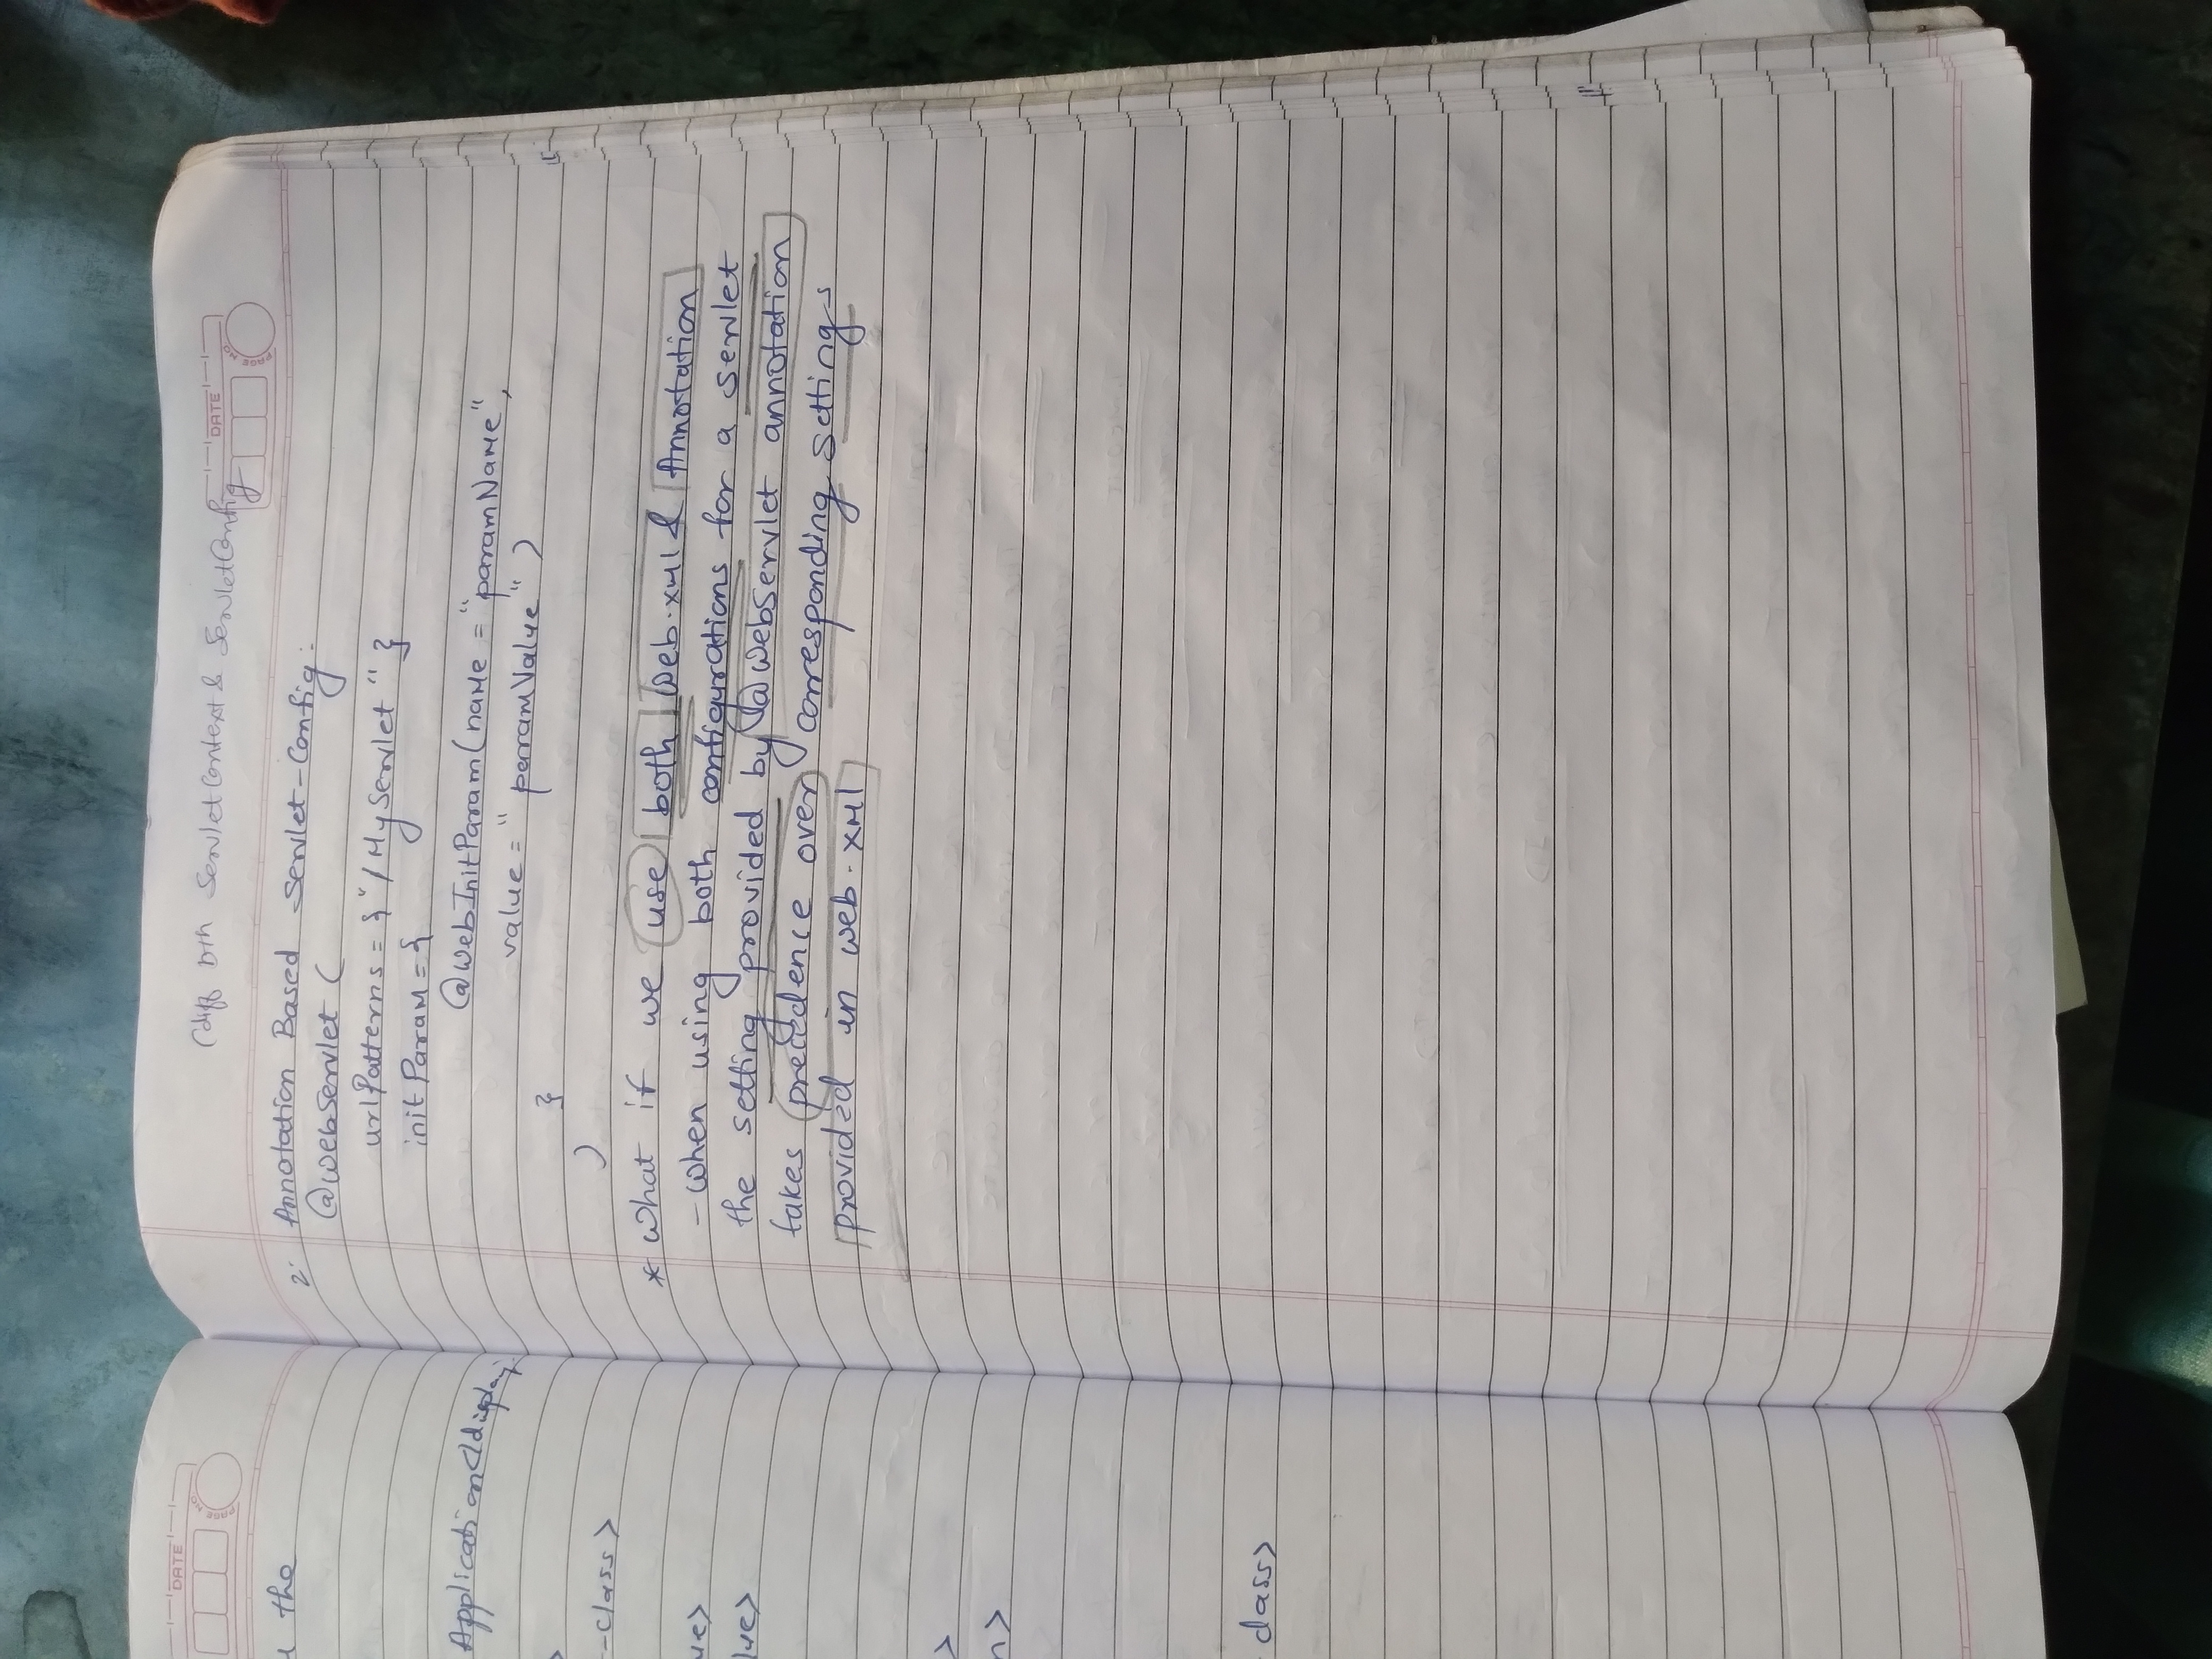 DATE
PAGE NO
the
Application</display>
-class>
ue>
lue>
>
n>
class>
(diff btn ServletContext & ServletConfig
DATE
PAGE NO
2. Annotation Based Servlet-Config:
@webServlet (
urlPatterns = {"/MyServlet"}
initParam = {
@webInitParam(name = "paramName",
value = "paramValue")
}
)
* What if we use both web.xml & Annotation
- when using both configurations for a servlet
the setting provided by @webservlet annotation
takes precedence over corresponding settings
provided in web.xml